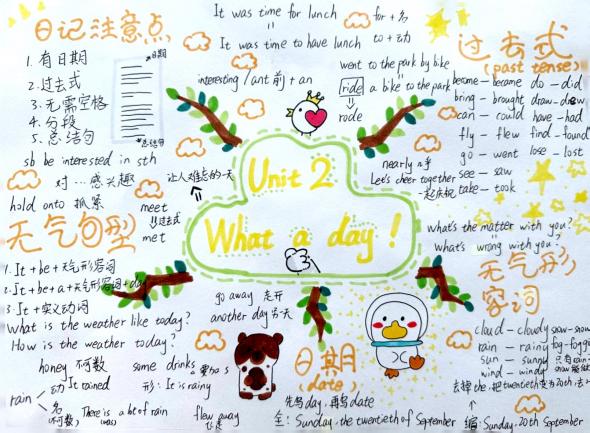 日记注意点
1. 有日期
2. 过去式
3. 无需空格
4. 分段
5. 总结句
日期
总结句
sb be interested in sth
对…感兴趣
hold onto 抓紧
It was time for lunch
for + 名
It was time to have lunch
to + 动
interesting / ant 前 + an
went to the park by bike
ride a bike to the park
rode
过去式
(past tense)
become – became
do – did
bring – brought
draw – drew
can – could
have – had
fly – flew
find – found
go – went
lose – lost
see – saw
take – took
nearly 几乎
Let's cheer together
一起庆祝
让人难忘的一天
meet
过去式
met
Unit 2
What a day!
what's the matter with you?
what's wrong with you?
天气句型
1. It + be + 天气形容词
2. It + be + a + 天气形容词 + day
3. It + 实义动词
What is the weather like today?
How is the weather today?
honey 不可数
some drinks
要加 s
rain
动 It rained
形: It is rainy
名 (不可数)
There is a lot of rain
(was)
flew away
飞走
go away 走开
another day 另一天
日期
(date)
先写 day, 再写 date
全: Sunday, the twentieth of September
缩: Sunday, 20th September
去掉 the, 把 twentieth 变为 20th, 去
天气形容词
cloud – cloudy
snow – snow
rain – rainy
fog – foggy
sun – sunny
只有 rain
wind – windy
snow